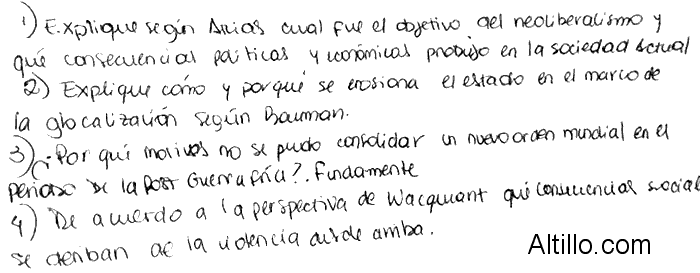 1) Explique según Arias cual fue el objetivo del neoliberalismo y
qué consecuencias políticas y económicas produjo en la sociedad actual
2) Explique cómo y por qué se erosiona el estado en el marco de
la glocalización según Bauman.
3) ¿Por qué motivos no se pudo consolidar un nuevo orden mundial en el
periodo de la Post Guerra fría?. Fundamente
4) De acuerdo a la perspectiva de Wacquant qué consecuencias sociales
se deriban de la violencia desde arriba.
Altillo.com